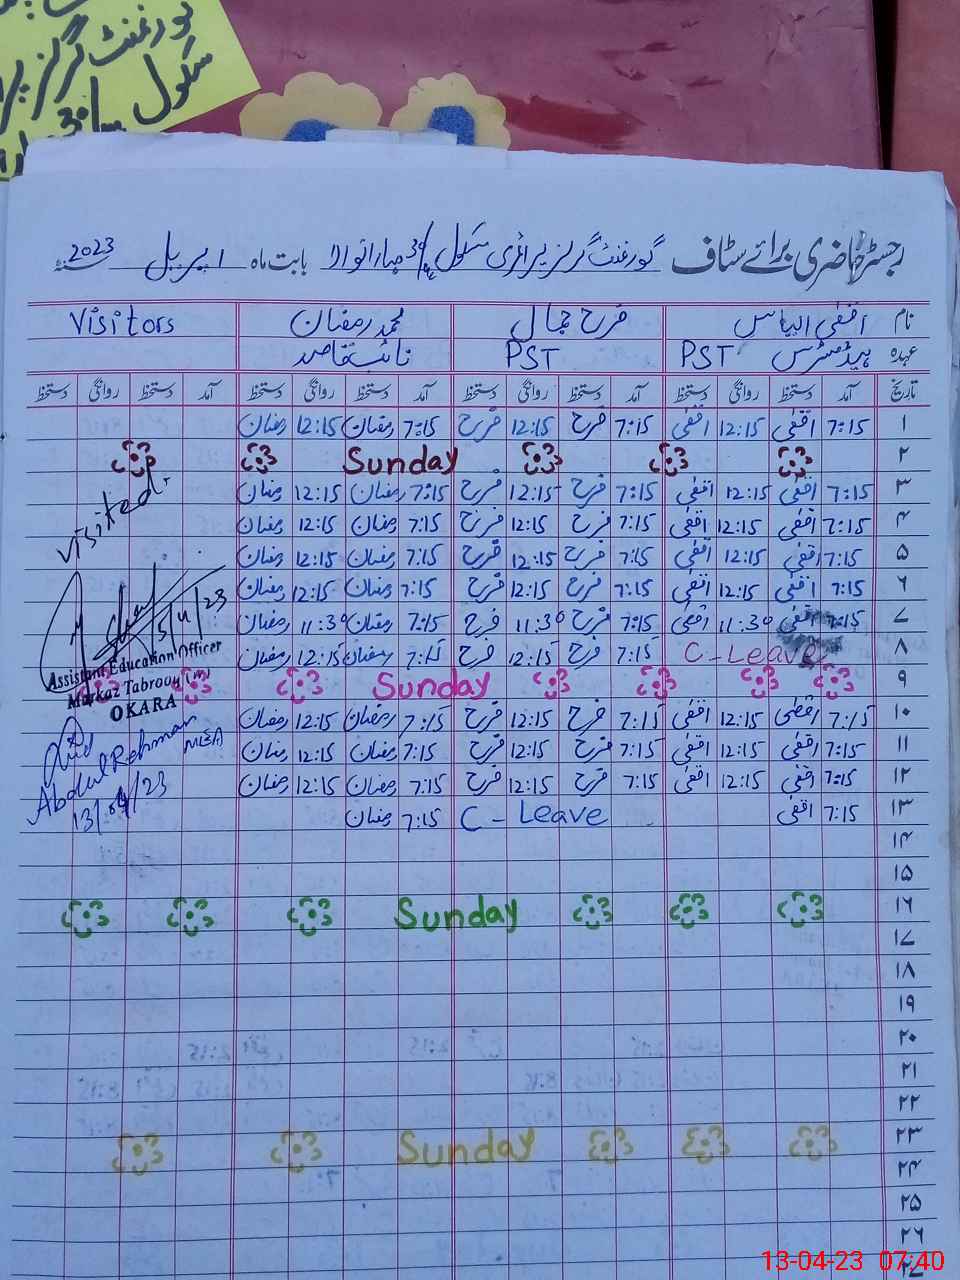 گورنمنٹ گرلز
سکول
رجسٹر حاضری برائے سٹاف گورنمنٹ گرلز پرائمری سکول بابت ماہ اپریل 2023
نام اقصٰی الیاس فرح جمال محمد رمضان Visitors
عہدہ ہیڈمسٹرس PST PST نائب قاصد
تاریخ آمد دستخط روانگی دستخط آمد دستخط روانگی دستخط آمد دستخط روانگی دستخط آمد دستخط روانگی دستخط
۱ 7:15 اقصٰی 12:15 اقصٰی 7:15 فرح 12:15 فرح 7:15 رمضان 12:15 رمضان
۲ Sunday
۳ 7:15 اقصٰی 12:15 اقصٰی 7:15 فرح 12:15 فرح 7:15 رمضان 12:15 رمضان
۴ 7:15 اقصٰی 12:15 اقصٰی 7:15 فرح 12:15 فرح 7:15 رمضان 12:15 رمضان
۵ 7:15 اقصٰی 12:15 اقصٰی 7:15 فرح 12:15 فرح 7:15 رمضان 12:15 رمضان
۶ 7:15 اقصٰی 12:15 اقصٰی 7:15 فرح 12:15 فرح 7:15 رمضان 12:15 رمضان
۷ 7:15 اقصٰی 11:30 اقصٰی 7:15 فرح 11:30 فرح 7:15 رمضان 11:30 رمضان
۸ C-Leave 7:15 فرح 12:15 فرح 7:15 رمضان 12:15 رمضان
۹ Sunday
۱۰ 7:15 اقصٰی 12:15 اقصٰی 7:15 فرح 12:15 فرح 7:15 رمضان 12:15 رمضان
۱۱ 7:15 اقصٰی 12:15 اقصٰی 7:15 فرح 12:15 فرح 7:15 رمضان 12:15 رمضان
۱۲ 7:15 اقصٰی 12:15 اقصٰی 7:15 فرح 12:15 فرح 7:15 رمضان 12:15 رمضان
۱۳ 7:15 اقصٰی C-Leave 7:15 رمضان
۱۴
۱۵
۱۶ Sunday
۱۷
۱۸
۱۹
۲۰
۲۱
۲۲
۲۳ Sunday
۲۴
۲۵
۲۶
۲۷
Visited
5/4/23
Assistant Education Officer
Markaz Tabrooq (W)
OKARA
Abdul Rehman
MEA
13/04/23
13-04-23 07:40